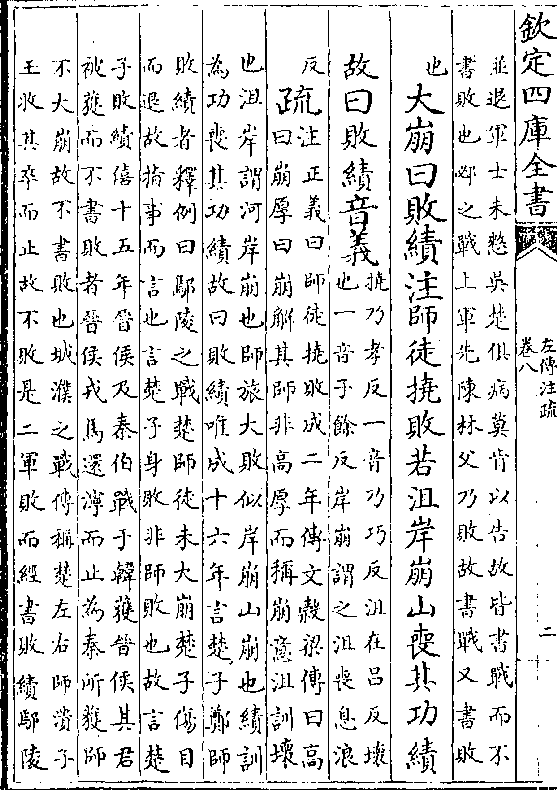 欽定四庫全書
左傳注疏
卷八
二
並退軍士未憖吳楚俱病莫肯以告故皆書戰而不
書敗也邲之戰上軍先陳林父乃敗故書戰又書敗
也
大崩曰敗績注師徒撓敗若沮岸崩山喪其功績
故曰敗績音義
撓乃孝反一音乃巧反沮在呂反壞
也一音子餘反岸崩謂之沮喪息浪
反
疏
注正義曰師徒撓敗成二年傳文穀梁傳曰高
曰崩厚曰崩解其師非高厚而稱崩意沮訓壞
也沮岸謂河岸崩也師旅大敗似岸崩山崩也績訓
為功喪其功績故曰敗績唯成十六年言楚子鄭師
敗績者釋例曰鄢陵之戰楚師徒未大崩楚子傷目
而退故指事而言也言楚子身敗非師敗也故言楚
子敗績僖十五年晉侯及秦伯戰于韓獲晉侯其君
被獲而不書敗者晉侯戎馬還濘而止為秦所獲師
不大崩故不書敗也城濮之戰傳稱楚左右師潰子
玉收其卒而止故不敗是二軍敗而經書敗績鄢陵